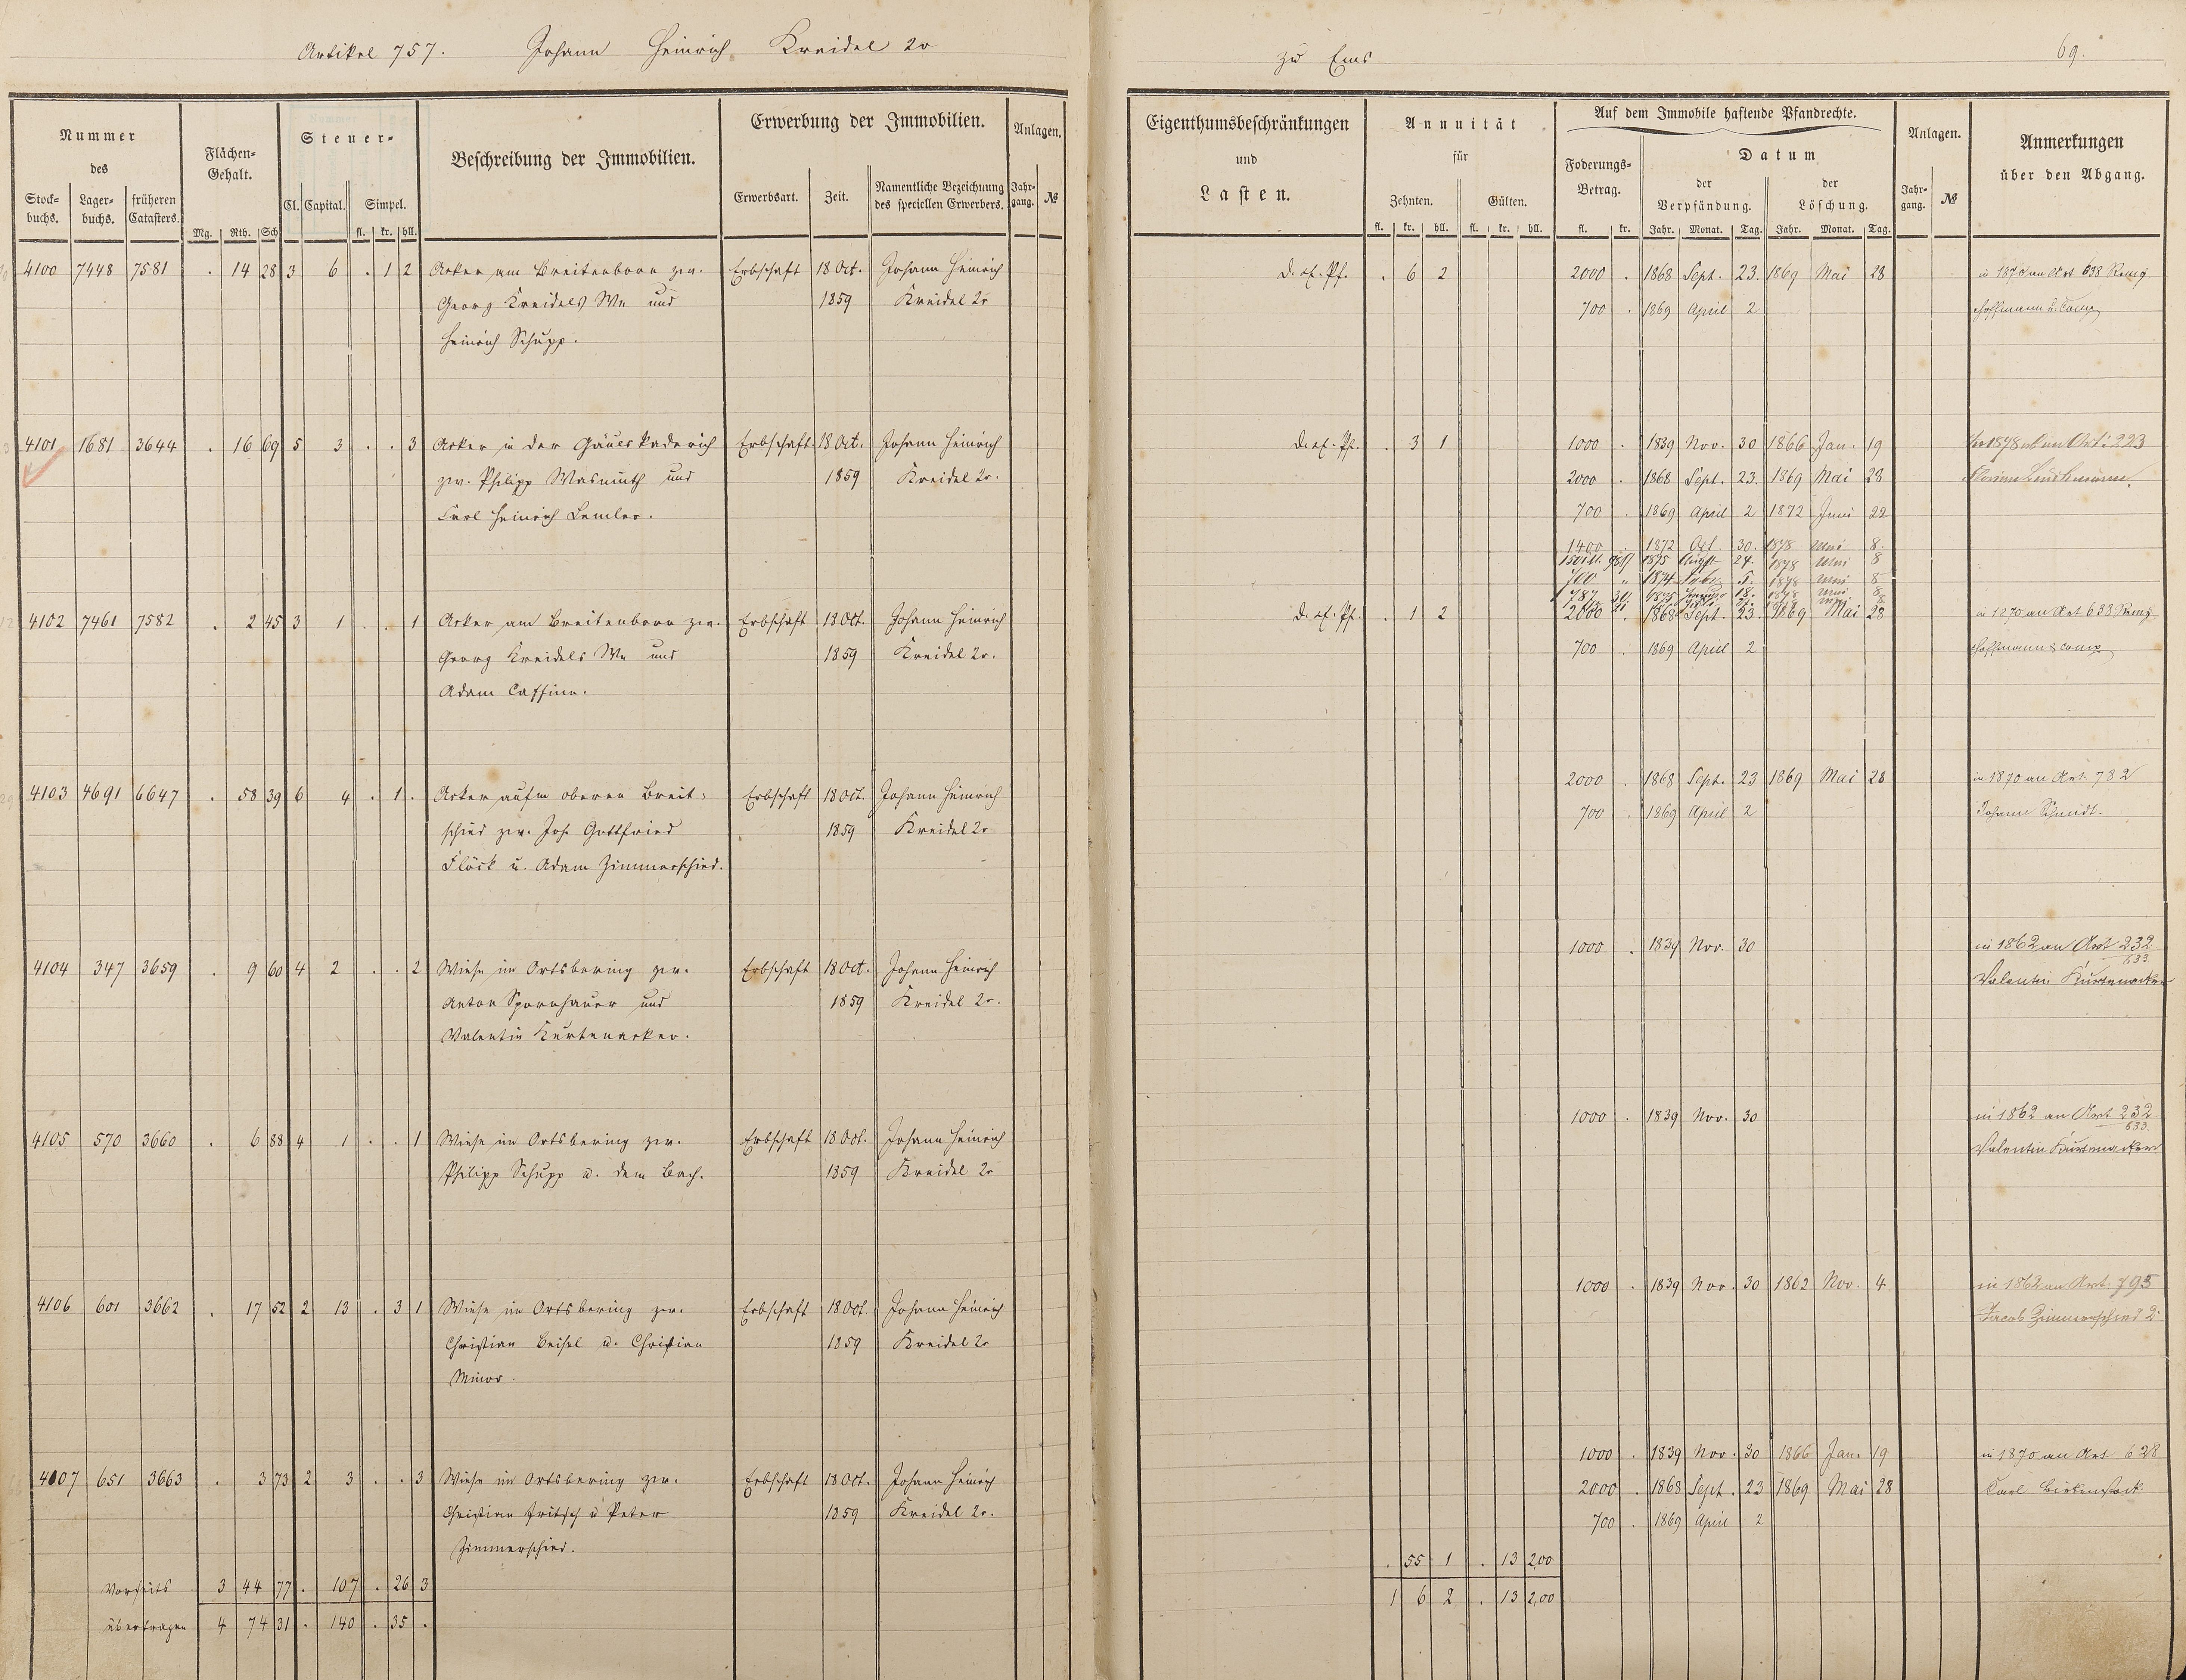 Artikel 757. Johann Heinrich Kreidel 2r zu Ems 69.
Nummer des
Stock-buchs. Lager-buchs. früheren Catasters.
Flächen-Gehalt.
Mg. Rth. Sch
Steuer-
Cl. Capital. Simpel.
fl. kr. hll.
Beschreibung der Immobilien.
Erwerbung der Immobilien.
Erwerbsart. Zeit. Namentliche Bezeichnung des speciellen Erwerbers.
Anlagen.
Jahr-gang. №
Eigenthumsbeschränkungen und Lasten.
Annuität für
Zehnten. Gülten.
fl. kr. hll. fl. kr. hll.
Auf dem Immobile haftende Pfandrechte.
Foderungs-Betrag.
fl. kr.
Datum
der Verpfändung. der Löschung.
Jahr. Monat. Tag. Jahr. Monat. Tag.
Anlagen.
Jahr-gang. №
Anmerkungen über den Abgang.
4100 7448 7581 . 14 28 3 6 . 1 2 Acker am Breitenborn zw. Erbschaft 18 Oct. Johann Heinrich d. rf. Pf. . 6 2 2000 . 1868 Sept. 23. 1869 Mai 28 in 1870 an Art 638 Remy
Georg Kreidels We und 1859 Kreidel 2r 700 . 1869 April 2 Hoffmann & Comp
Heinrich Schupp.
4101 1681 3644 . 16 69 5 3 . . 3 Acker in der Gäuls Kaderich Erbschaft 18 Oct. Johann Heinrich d. rf. Pf. . 3 1 1000 . 1839 Nov. 30 1866 Jan. 19 In 1878 an Art: 223
zw. Philipp Wasmuth und 1859 Kreidel 2r. 2000 . 1868 Sept. 23. 1869 Mai 28
Carl Heinrich Lemler. 700 . 1869 April 2 1872 Juni 22
1400 . 1872 Oct. 30. 1878 Mai 8.
1875 Aug. 24. 1878 Mai 8
700 " 1874 1. 1878 Mai 8
787 18. 1878 Mai 8.
4102 7461 7582 . 2 45 3 1 . . 1 Acker am Breitenborn zw. Erbschaft 18 Oct. Johann Heinrich d. rf. Pf. . 1 2 2000 . 1868 Sept. 23. 1869 Mai 28 in 1870 an Art 638 Remy
Georg Kreidels We und 1859 Kreidel 2r. 700 . 1869 April 2 Hoffmann & Comp
Adam Caffine.
4103 4691 6647 . 58 39 6 4 . 1 . Acker aufm oberen Breit- Erbschaft 18 Oct. Johann Heinrich 2000 . 1868 Sept. 23 1869 Mai 28 in 1870 an Art. 782
schied zw. Joh. Gottfried 1859 Kreidel 2r 700 . 1869 April 2 Johann Schmidt.
Flöck u. Adam Zimmerschied.
4104 347 3659 . 9 60 4 2 . . 2 Wiese im Ortsbering zw. Erbschaft 18 Oct. Johann Heinrich 1000 . 1839 Nov. 30 in 1862 an Art 232
633.
Anton Spornhauer und 1859 Kreidel 2r. Valentin Kurtenacker
Valentin Kurtenacker.
4105 570 3660 . 6 88 4 1 . . 1 Wiese im Ortsbering zw. Erbschaft 18 Oct. Johann Heinrich 1000 . 1839 Nov. 30 in 1862 an Art 232
633.
Philipp Schupp u. dem Bach. 1859 Kreidel 2r Valentin Kurtenacker
4106 601 3662 . 17 52 2 13 . 3 1 Wiese im Ortsbering zw. Erbschaft 18 Oct. Johann Heinrich 1000 . 1839 Nov. 30 1862 Nov. 4 in 1862 an Art. 795
Christian Beisel u. Christian 1859 Kreidel 2r Jacob Zimmerschied 2.
Minor.
4107 651 3663 . 3 73 2 3 . . 3 Wiese im Ortsbering zw. Erbschaft 18 Oct. Johann Heinrich 1000 . 1839 Nov. 30 1866 Jan. 19 in 1870 an Art 628
Christian Fritsch u Peter 1859 Kreidel 2r. 2000 . 1868 Sept. 23 1869 Mai 28 Carl Birkenstock.
Zimmerschied. 700 . 1869 April 2
. 55 1 . 13 2,00
Vorseits 3 44 77 . 107 . 26 3
1 6 2 . 13 2,00
übertragen 4 74 31 . 140 . 35 .